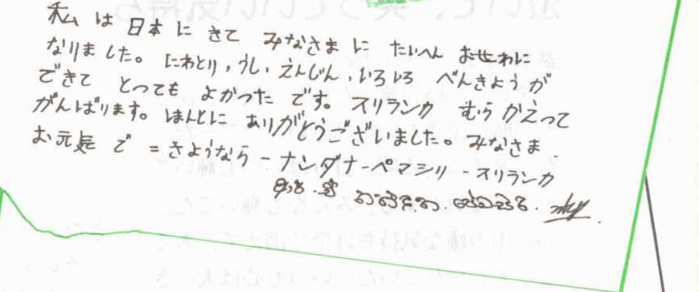 私 は 日本 に きて みなさま に たいへん おせわに
なりました。 にわとり, うし, えんじん, いろいろ べんきょうが
できて とっても よかった です。 スリランカ むら かえって
がんばります。 ほんとに ありがとうございました。 みなさま
お元気 で = さようなら - ナンダナ - ペマシリ - スリランカ